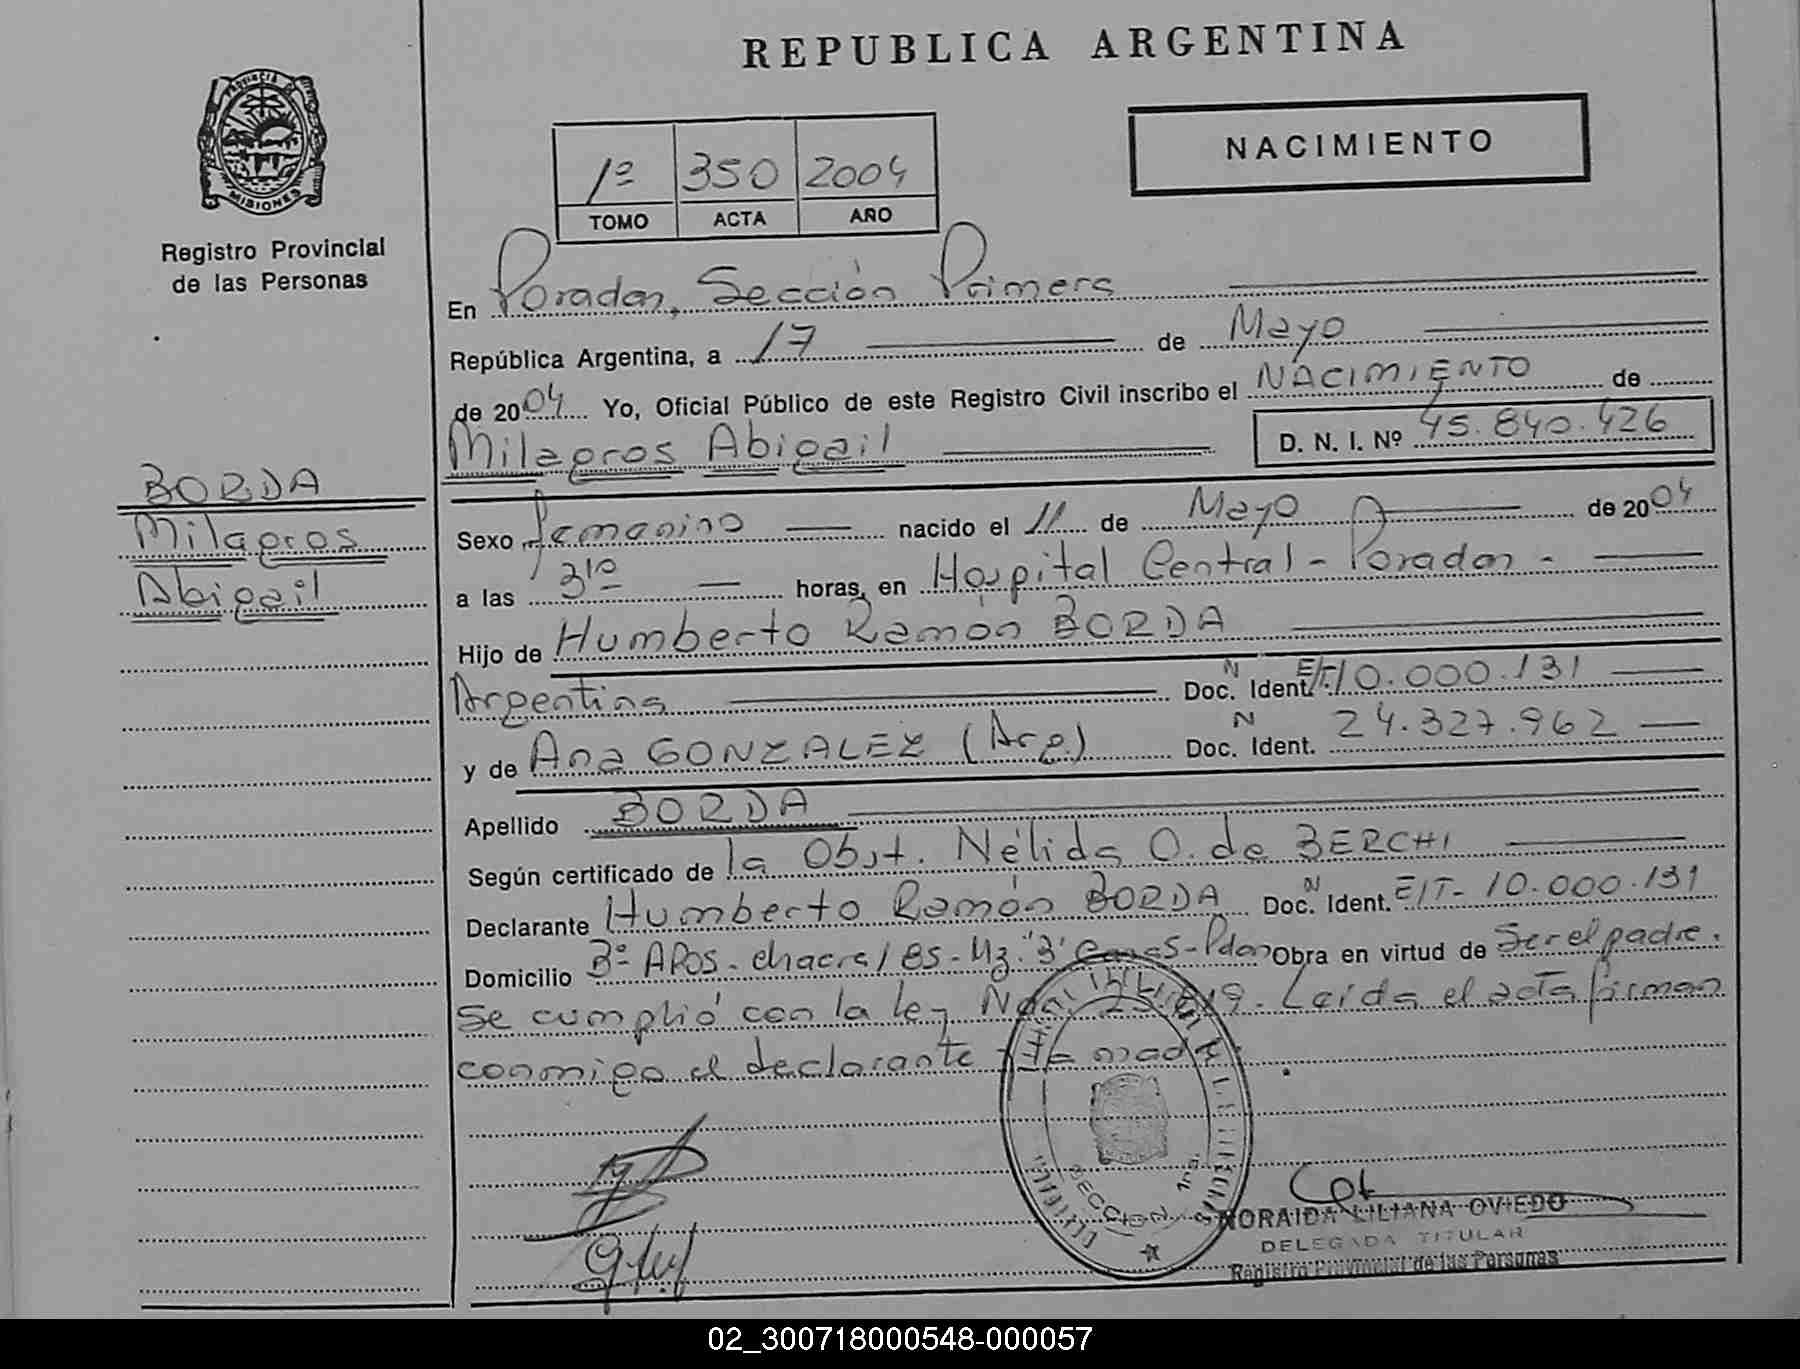 REPUBLICA ARGENTINA
PROVINCIA DE
MISIONES
Registro Provincial
de las Personas
NACIMIENTO
1º 350 2004
TOMO ACTA AÑO
En Posadas, Sección Primera
República Argentina, a 17 de Mayo
de 2004 Yo, Oficial Público de este Registro Civil inscribo el NACIMIENTO de
Milagros Abigail D. N. I. Nº 45.840.426
BORDA
Milagros
Abigail
Sexo Femenino nacido el 11 de Mayo de 2004
a las 3'º horas, en Hospital Central - Posadas -
Hijo de Humberto Ramón BORDA
Argentina Doc. N Ident. E/T-10.000.131
y de Ana GONZALEZ (Arg.) Doc. N Ident. 24.327.962
Apellido BORDA
Según certificado de la Obst. Nélida O. de BERCHI
Declarante Humberto Ramón BORDA Doc. N Ident. E/T- 10.000.131
Domicilio 3º APOS. chacra / Mz. Pdas Obra en virtud de Ser el padre.
Se cumplió con la ley Leída el acta firman
conmigo el declarante
SECCION 1ra.
NORAIDA LILIANA OVIEDO
DELEGADA TITULAR
Registro Provincial de las Personas
02_300718000548-000057